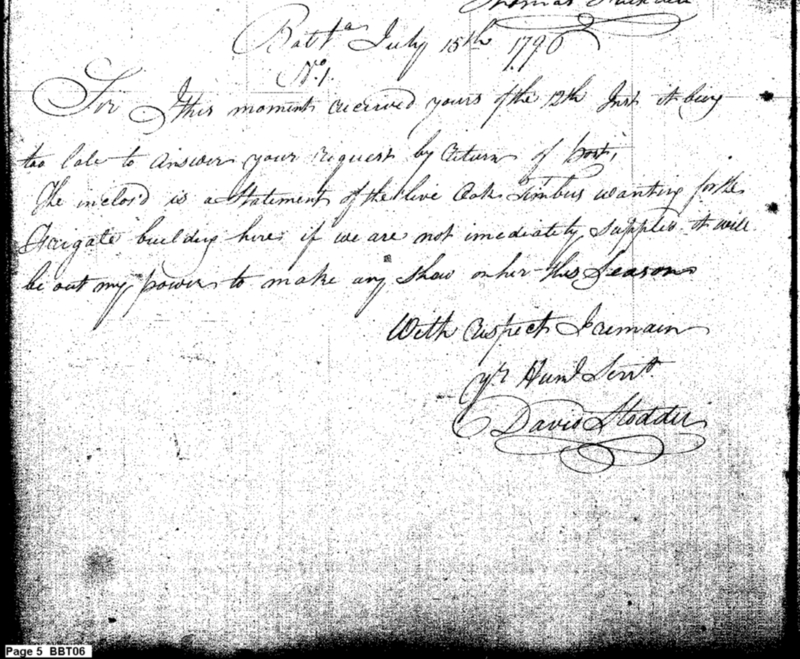 Thomas
Balta July 15th 1796
No. 1.
Sir This moment received yours of the 12th Inst it being
too late to answer your request by return of post,
The inclos'd is a Statement of the live Oak Timber wanting for the
Frigate building here if we are not imediately Supplied it will
be out my power to make any Show on her this Season
With respect I remain
yr Huml Servt
David Stodder
Page 5 BBT06